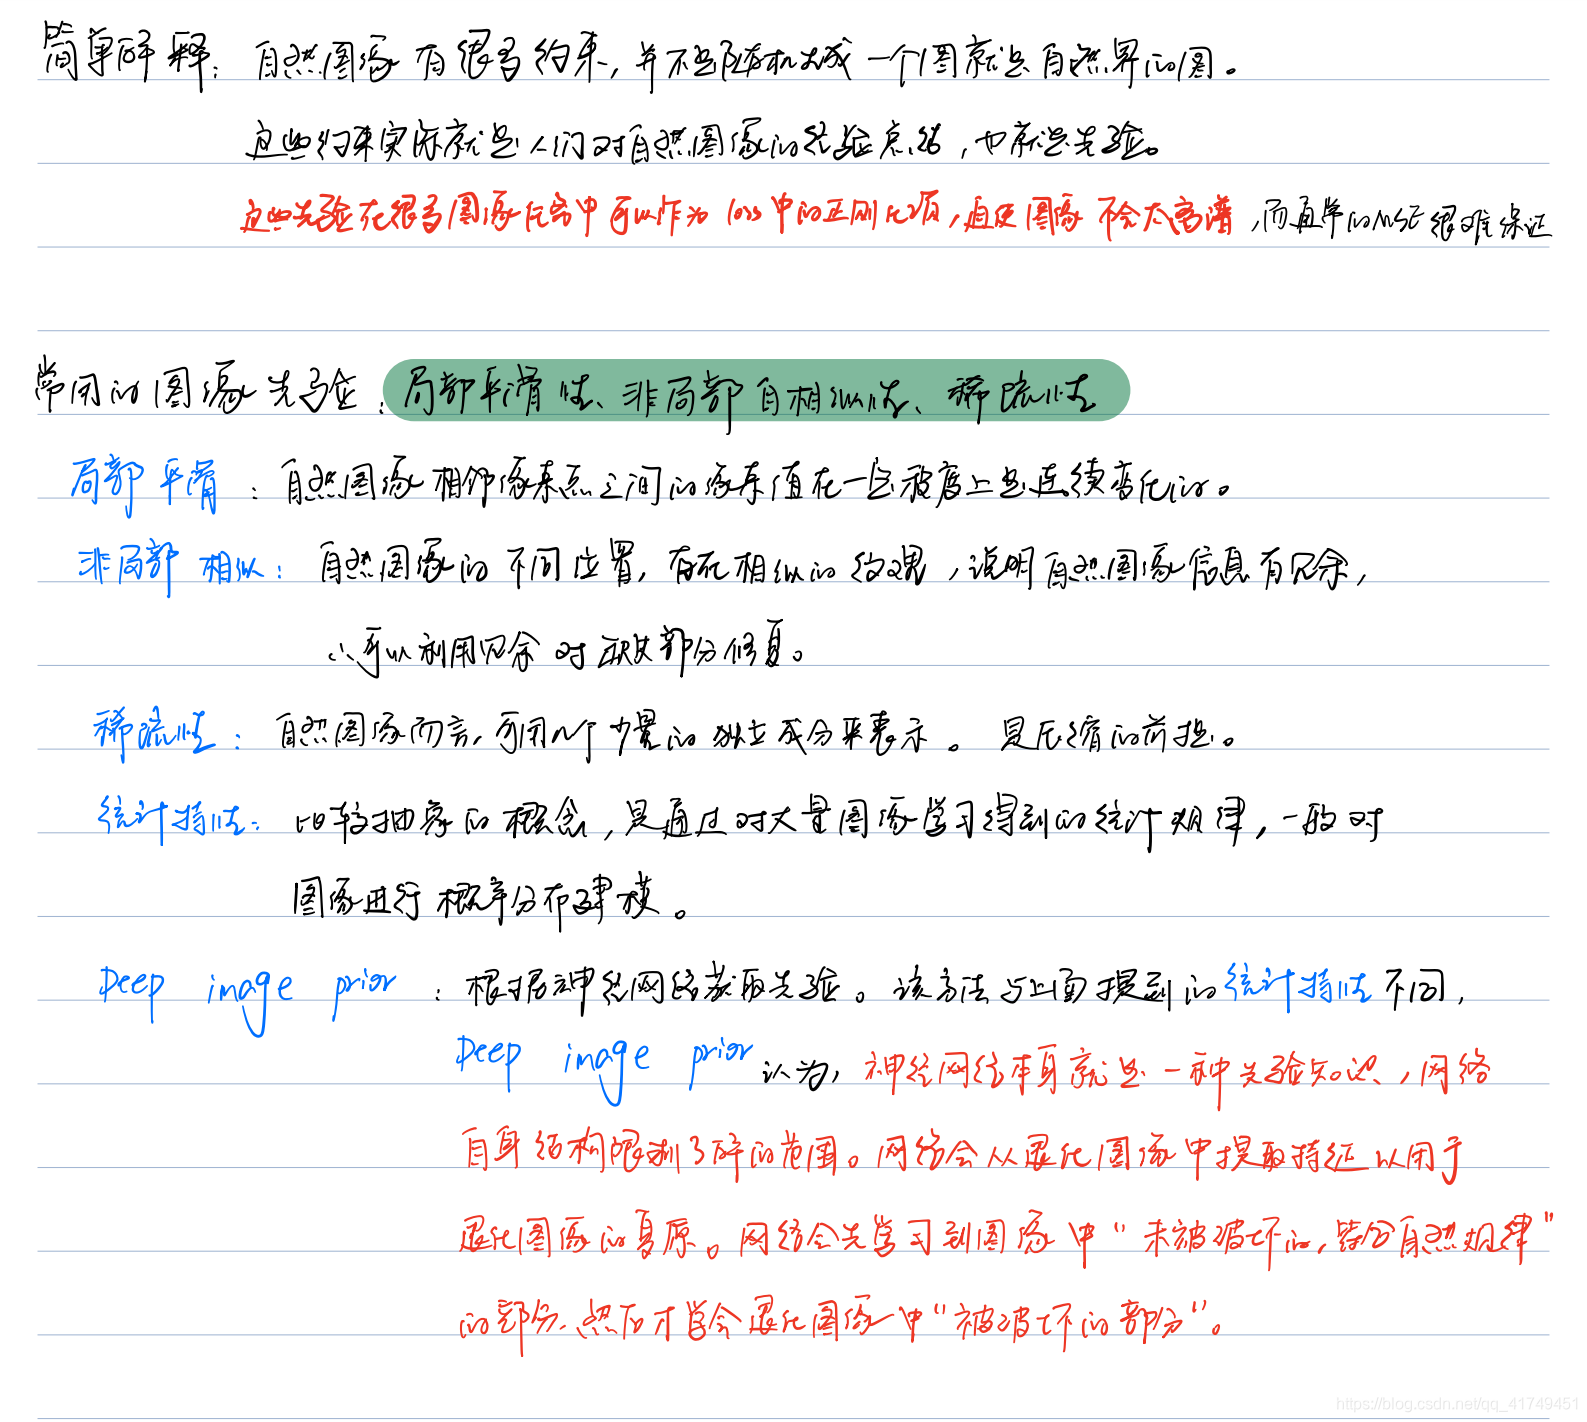 简单解释：自然图像有很多约束，并不是随机生成一个图就是自然界的图。
这些约束实际就是人们对自然图像的经验总结，也就是先验。
这些先验在很多图像任务中可以作为 loss 中的正则化项，迫使图像不会太离谱，而直单的MSE很难保证
常用的图像先验：局部平滑性、非局部自相似性、稀疏性
局部平滑：自然图像相邻像素点之间的像素值在一定程度上是连续变化的。
非局部相似：自然图像的不同位置，存在相似的纹理，说明自然图像信息有冗余，
∴可以利用冗余对缺失部分修复。
稀疏性：自然图像而言，可用个少量的独立成分来表示。是压缩的前提。
统计特性：比较抽象的概念，是通过对大量图像学习得到的统计规律，一般对
图像进行概率分布建模。
Deep image prior：根据神经网络获取先验。该方法与上面提到的统计特性不同，
Deep image prior 认为，神经网络本身就是一种先验知识，网络
自身结构限制了解的范围。网络会从退化图像中提取特征以用于
退化图像的复原。网络会先学习到图像中“未被破坏的，符合自然规律”
的部分，然后才学会退化图像中“被破坏的部分”。
https://blog.csdn.net/qq_41749451